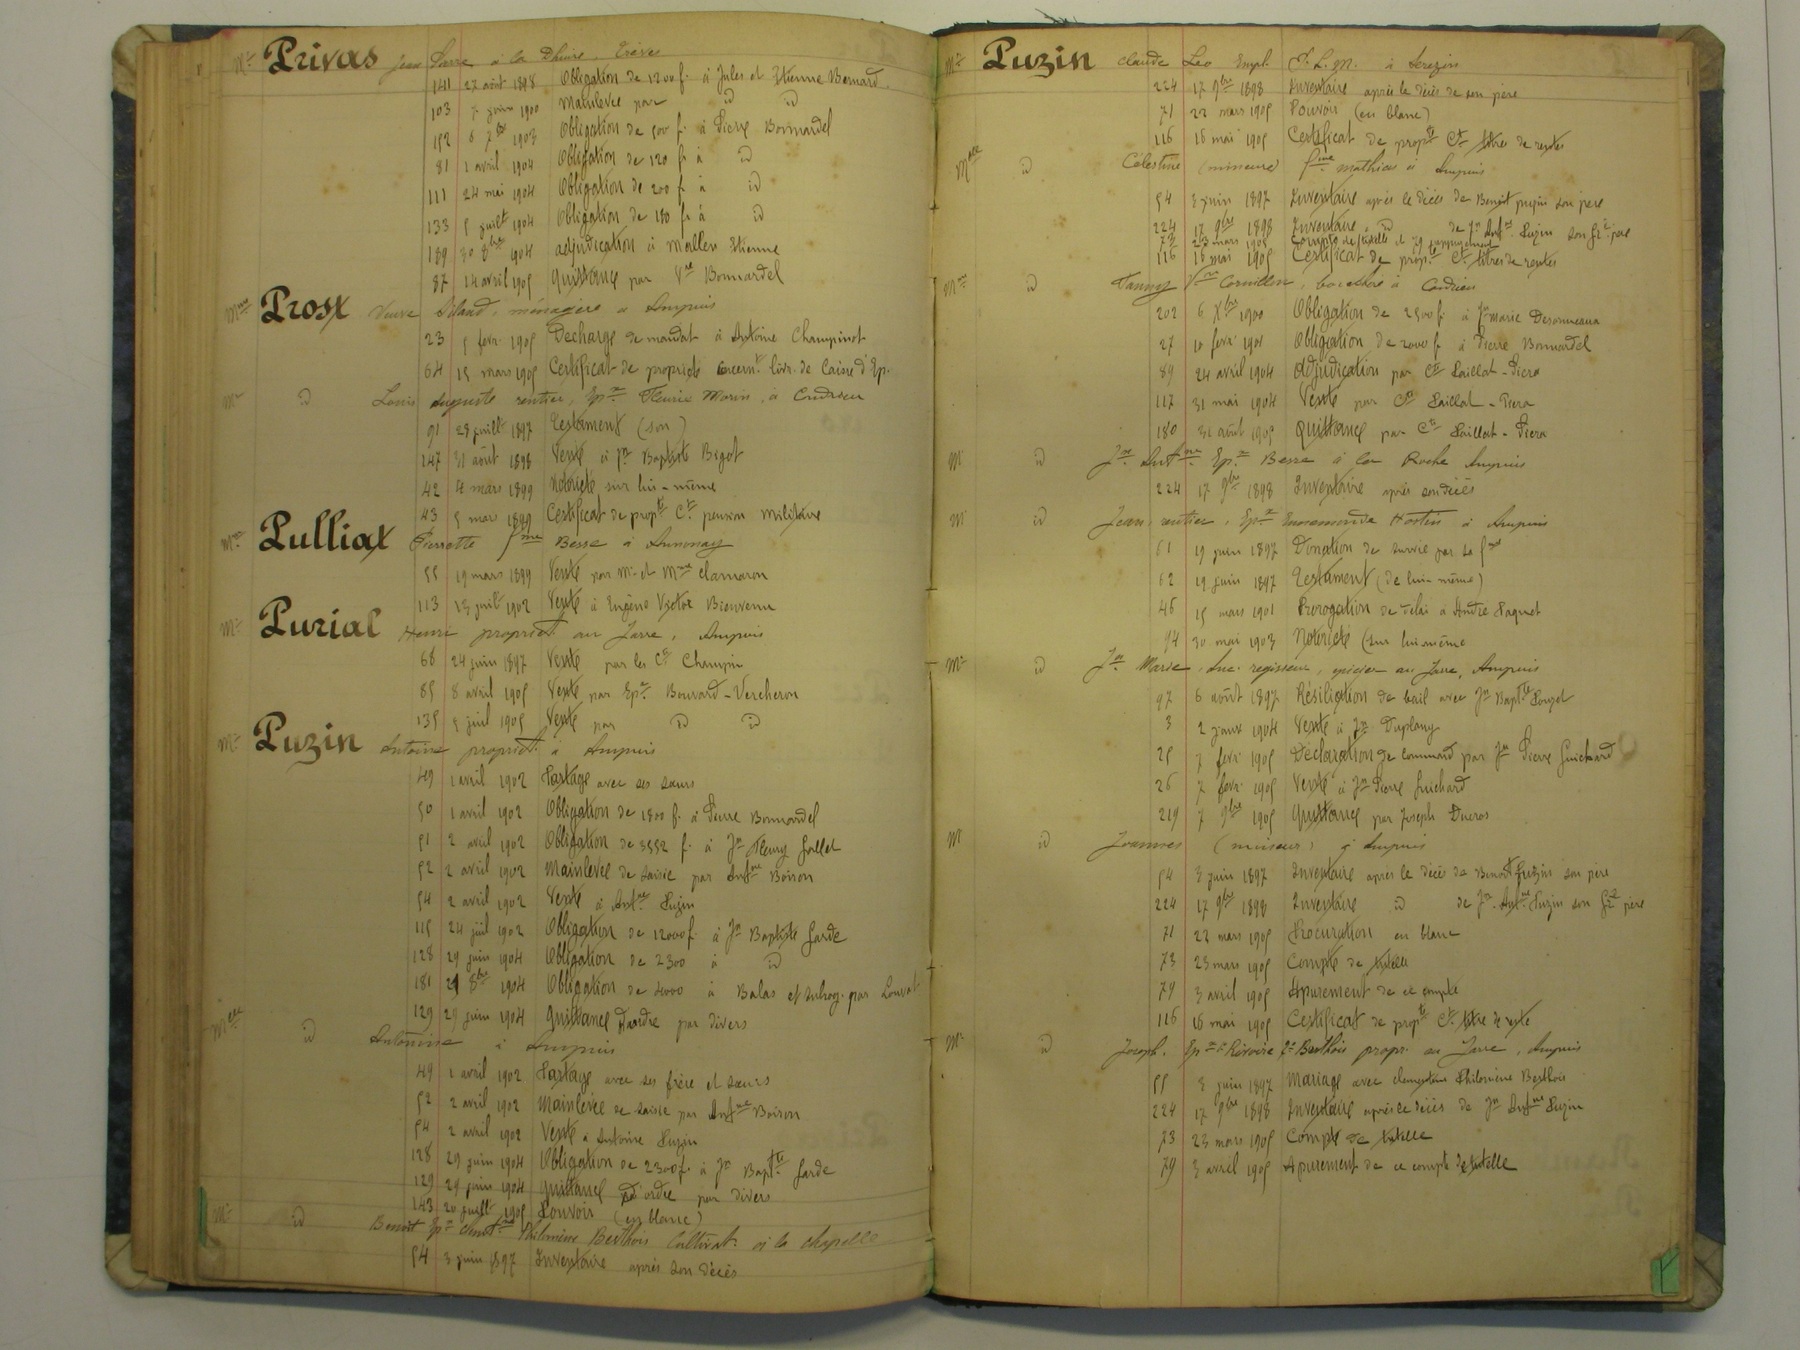 Mr Privas Jean Pierre à la Dhuire Trèves
141 27 août 1898 Obligation de 1200 f. à Jules et Etienne Bernard
103 7 juin 1900 Mainlevée par id id
152 6 7bre 1903 Obligation de 500 f. à Pierre Bonnardel
81 1 avril 1904 Obligation de 120 f. à id
111 24 mai 1904 Obligation de 200 f. à id
133 5 juilt 1904 Obligation de 180 fr à id
189 30 8bre 1904 adjudication à Mallen Etienne
87 14 avril 1905 Quittance par Vve Bonnardel
Mme Prost Veuve ménagère à Ampuis
23 5 fevr. 1905 Decharge de mandat à Antoine Champinot
64 15 mars 1905 Certificat de propriété concernt livr. de Caisse d'Ep.
Mr id Louis Auguste rentier, Epx Fleurie Morin, à Condrieu
91 28 juilt 1897 Testament (son)
147 31 août 1898 Vente à Jn Baptiste Bigot
42 4 mars 1899 Notoriété sur lui-même
43 5 mars 1899 Certificat de propté Ct pension militaire
Mme Pulliat Pierrette fme Besse à Annonay
55 19 mars 1899 Vente par Mr et Mme Clamaron
113 13 juilt 1902 Vente à Eugène Victor Bienvenu
Mr Purial Henri propriét. au Jarre, Ampuis
68 24 juin 1897 Vente par les Cts Champin
85 8 avril 1905 Vente par Epx Bouvard-Vercheron
135 5 juil 1905 Vente par id id
Mr Puzin Antoine propriét. à Ampuis
49 1 avril 1902 Partage avec ses sœurs
50 1 avril 1902 Obligation de 1800 f. à Pierre Bonnardel
51 2 avril 1902 Obligation de 3552 f. à Jn Fleury Gallet
52 2 avril 1902 Mainlevée de saisie par Antne Boiron
54 2 avril 1902 Vente à Antne Puzin
115 24 juil 1902 Obligation de 12000 f. à Jn Baptiste Garde
128 29 juin 1904 Obligation de 2300 à id
181 21 8bre 1904 Obligation de 4000 à Balas et subrog. par Louvat
129 29 juin 1904 Quittance d'ordre par divers
Melle id Antonine à Ampuis
49 1 avril 1902 Partage avec ses frère et sœurs
52 2 avril 1902 Mainlevée de saisie par Antne Boiron
54 2 avril 1902 Vente à Antoine Puzin
128 29 juin 1904 Obligation de 2300 f. à Jn Baptte Garde
129 29 juin 1904 Quittance d'ordre par divers
143 20 juillt 1905 Pouvoir (en blanc)
Mr id Benoît Epx Philomène Berthois Cultivat. à la chapelle
54 3 juin 1897 Inventaire après son décès
Mr Puzin Claude Leo Empl. P.L.M. à Serezin
224 17 9bre 1898 Inventaire après le décès de son père
71 22 mars 1905 Pouvoir (en blanc)
116 16 mai 1905 Certificat de propté Ct titres de rentes
Melle id Célestine (mineure) fme Mathias à Ampuis
54 3 juin 1897 Inventaire après le décès de Benoît puzin son père
224 17 9bre 1898 Inventaire id de Jn Antne Puzin son Gd père
73 23 mars 1905 Compte de tutelle et 79 apurement
116 16 mai 1905 Certificat de propté Ct titres de rentes
Mme id Fanny Vve Cornillon, bouchère à Condrieu
202 6 Xbre 1900 Obligation de 2500 f. à Jn marie Desormeaux
27 10 fevr 1901 Obligation de 2000 f. à Pierre Bonnardel
89 24 avril 1904 Adjudication par Cts Paillat-Piera
117 31 mai 1904 Vente par Cts Paillat-Piera
180 31 août 1905 Quittance par Cts Paillat-Piera
Mr id Jn Antne Epx Besse à la Roche Ampuis
224 17 9bre 1898 Inventaire après son décès
Mr id Jean, rentier, Epx Enremonde Hostin à Ampuis
61 19 juin 1897 Donation de survie par sa fme
62 19 juin 1897 Testament (de lui-même)
46 15 mars 1901 Prorogation de délai à André Paquet
94 30 mai 1903 Notoriété (sur lui-même
Mr id Jn Marie, anc. regisseur, épicier au Jarre, Ampuis
97 6 août 1897 Résiliation de bail avec Jn Baptte Pouzet
3 2 janv 1904 Vente à Jn Duplany
25 7 fevr 1905 Déclaration de command par Jn Pierre Guichard
26 7 fevr 1905 Vente à Jn Pierre Guichard
219 7 9bre 1905 Quittance par Joseph Ducros
Mr id Joannes (mineur) à Ampuis
54 3 juin 1897 Inventaire après le décès de Benoît Puzin son père
224 17 9bre 1898 Inventaire id de Jn Antne Puzin son Gd père
71 22 mars 1905 Procuration en blanc
73 23 mars 1905 Compte de tutelle
79 3 avril 1905 Apurement de ce compte
116 16 mai 1905 Certificat de propté Ct titre de rente
Mr id Joseph, Epx Rivoire Berthois propr. au Jarre, Ampuis
55 3 juin 1897 Mariage avec Clementine Philomène Berthois
224 17 9bre 1898 Inventaire après le décès de Jn Antne Puzin
73 23 mars 1905 Compte de tutelle
79 3 avril 1905 Apurement de ce compte de tutelle